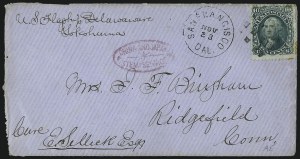 U.S. Flagship Delaware
Yokohama
SAN FRANCISCO
NOV
23
CAL.
Mrs. S. F. Bingham
Ridgefield
Conn
Care
E. Sellick Esq